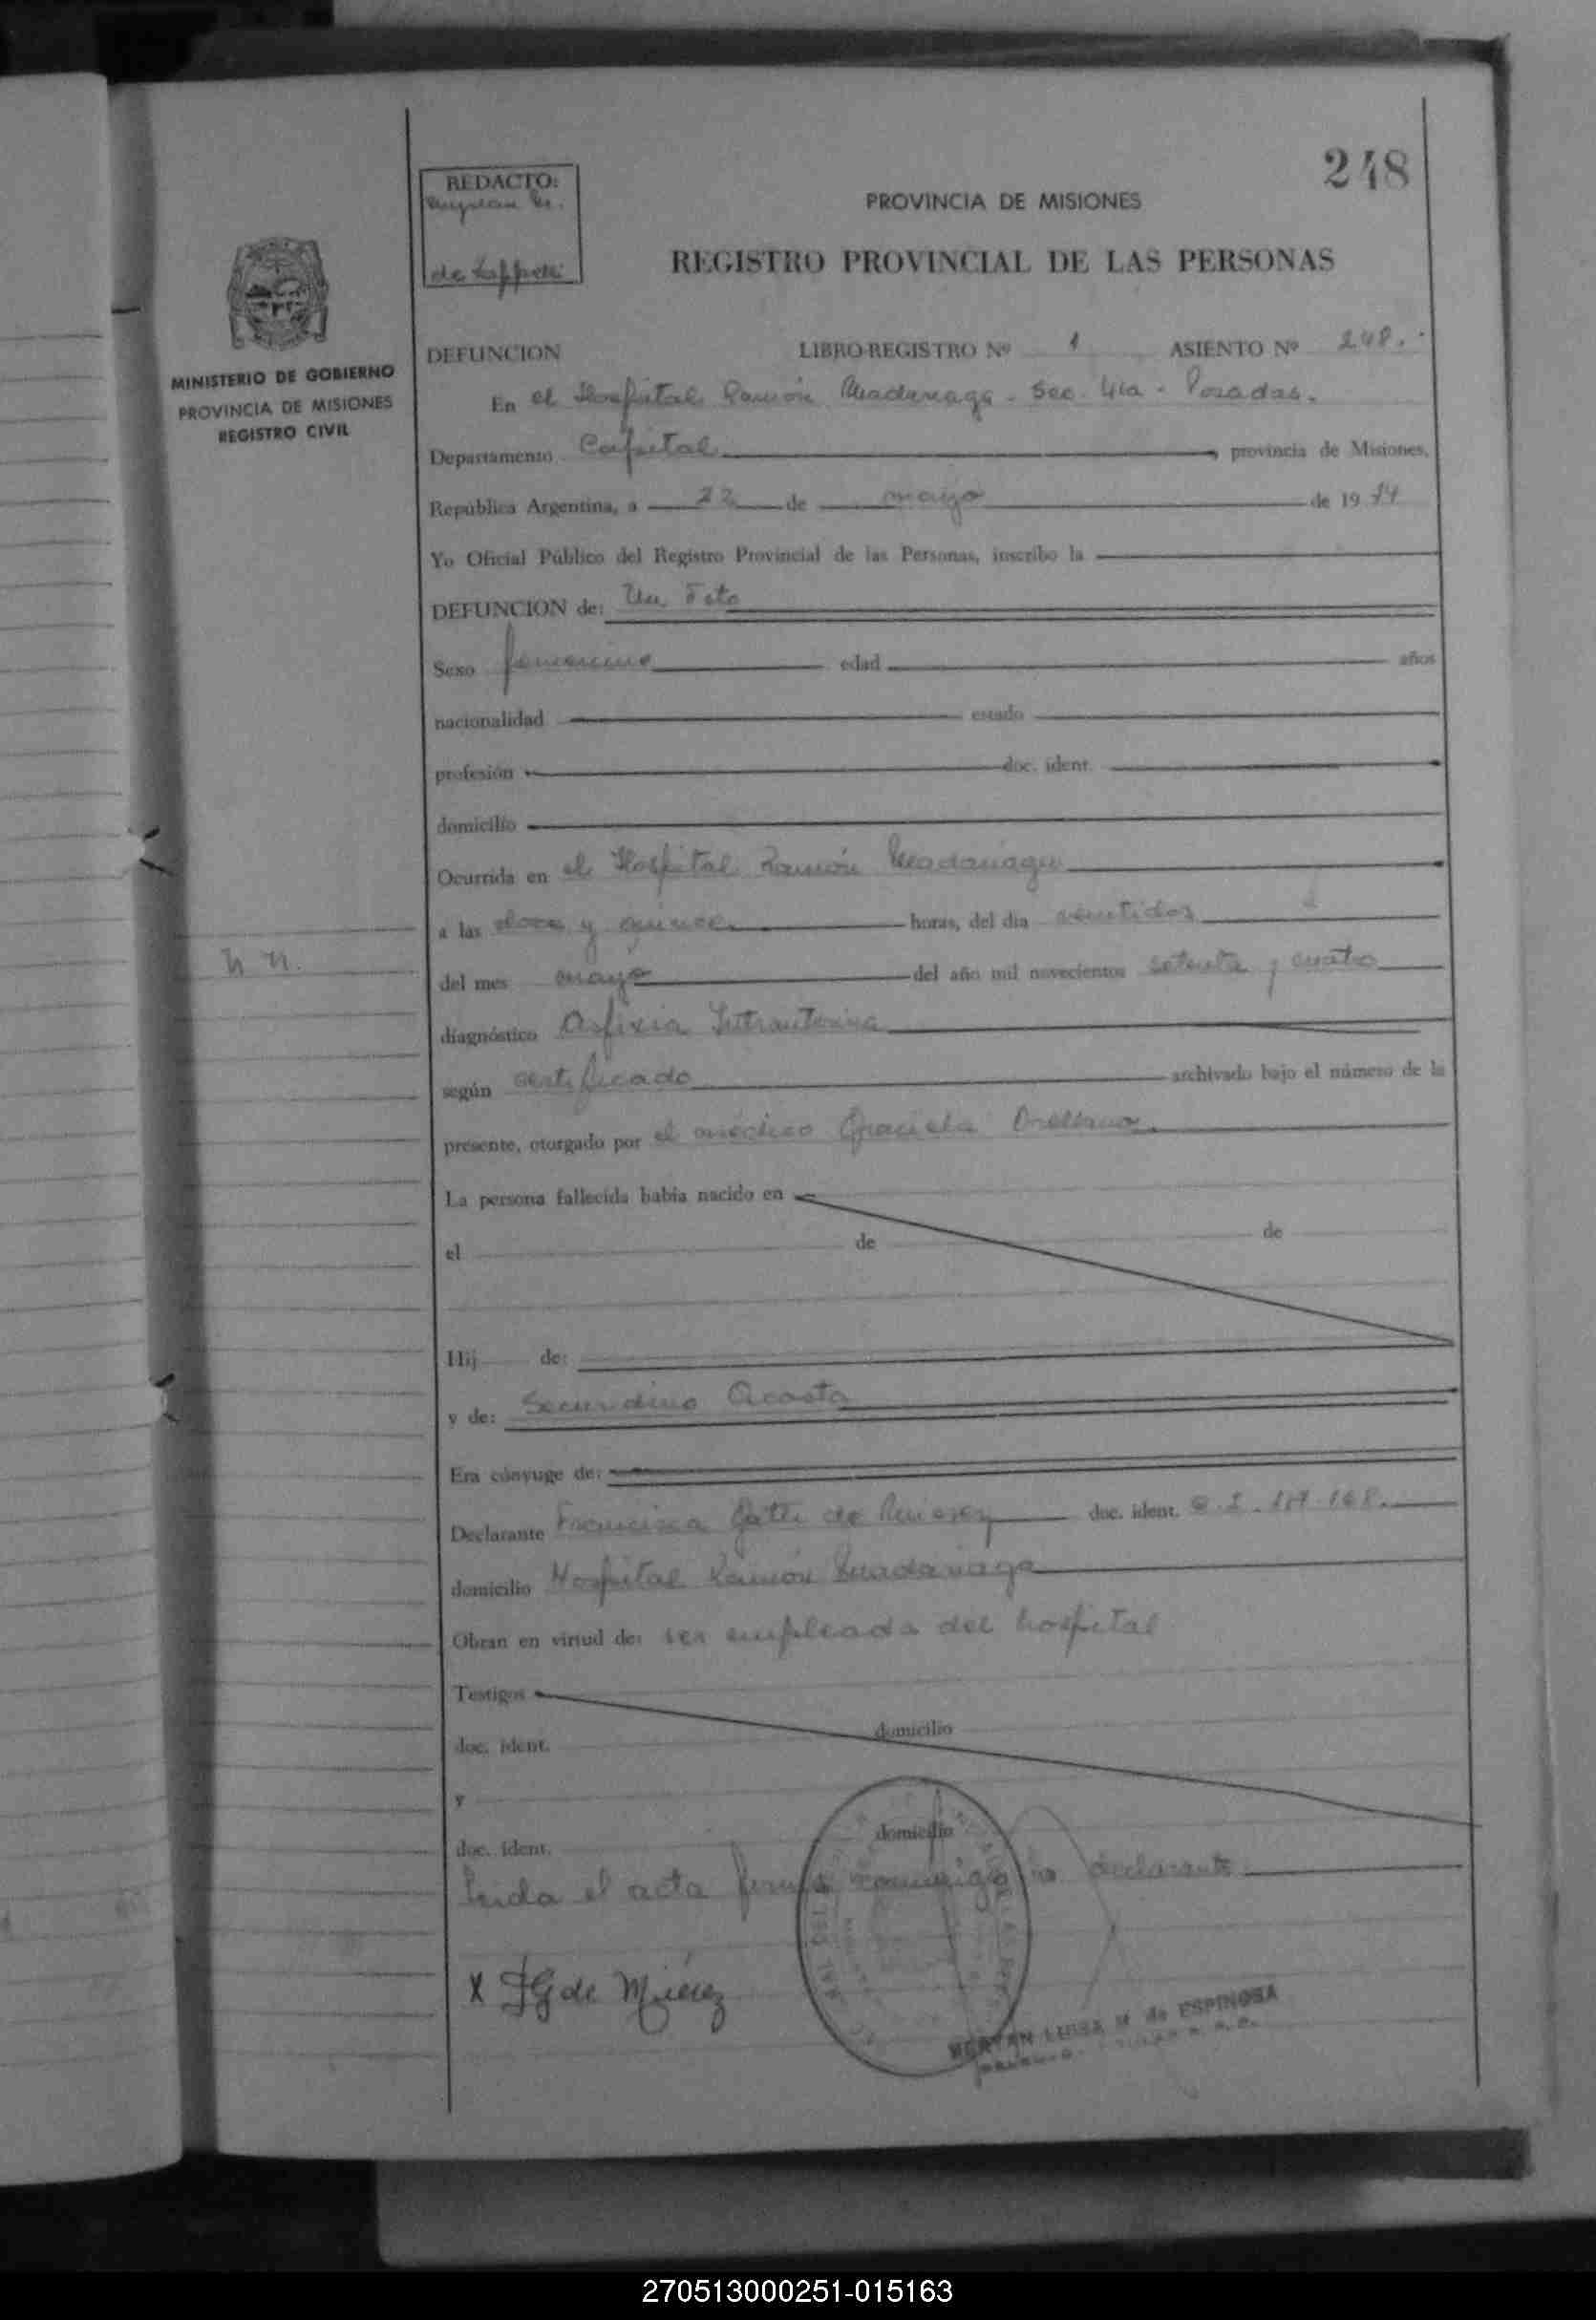 248
REDACTO:
de Zappelli
PROVINCIA DE MISIONES
REGISTRO PROVINCIAL DE LAS PERSONAS
MINISTERIO DE GOBIERNO
PROVINCIA DE MISIONES
REGISTRO CIVIL
DEFUNCION LIBRO-REGISTRO Nº 1 ASIENTO Nº 248.-
En el Hospital Ramón Madariaga - Sec. 4ta - Posadas.
Departamento Capital, provincia de Misiones,
República Argentina, a 22 de mayo de 1974
Yo Oficial Público del Registro Provincial de las Personas, inscribo la
DEFUNCION de: Un Feto
Sexo femenino edad años
nacionalidad estado
profesión doc. ident.
domicilio
Ocurrida en el Hospital Ramón Madariaga
a las doce y quince horas, del día veintidos
n n.
del mes mayo del año mil novecientos setenta y cuatro
diagnóstico Asfixia Intrauterina
según certificado archivado bajo el número de la
presente, otorgado por el médico Graciela Orellana.
La persona fallecida había nacido en
el de de
Hij de:
y de: Secundino Acosta
Era cónyuge de:
Declarante Francisca Gatti de doc. ident.
domicilio Hospital Ramón Madariaga
Obran en virtud de: ser empleada del hospital
Testigos
doc. ident. domicilio
y
doc. ident. domicilio
Leida el acta firma conmigo la declarante
X FG de
LUISA M de ESPINOSA
270513000251-015163